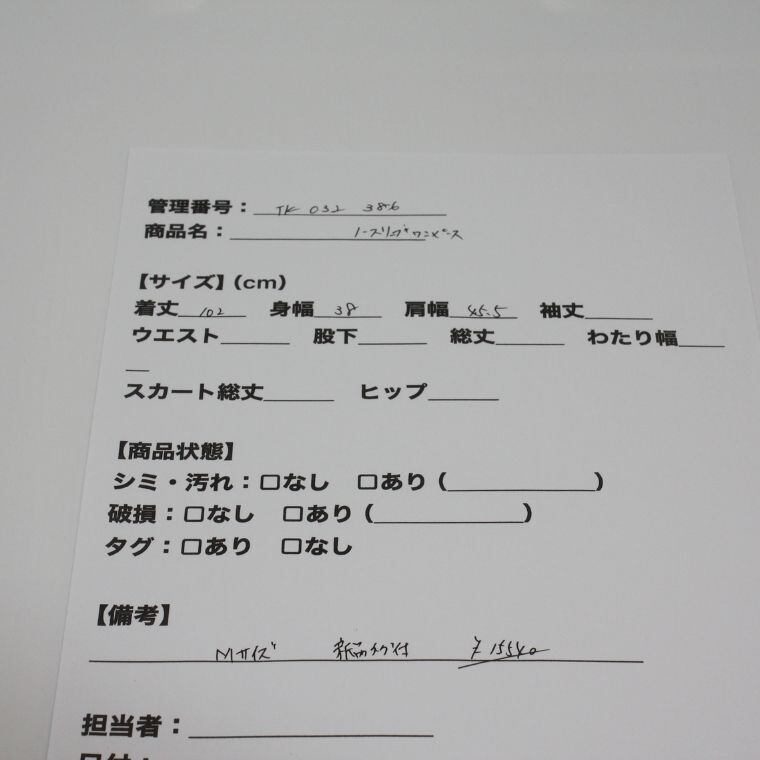 管理番号：TK 032 386
商品名：ノースリーブワンピース
【サイズ】(cm)
着丈 102 身幅 38 肩幅 45.5 袖丈______
ウエスト______ 股下______ 総丈______ わたり幅____
__
スカート総丈______ ヒップ______
【商品状態】
シミ・汚れ：□なし □あり（____________）
破損：□なし □あり（____________）
タグ：□あり □なし
【備考】
Mサイズ 新品タグ付 ¥15540
担当者：____________________